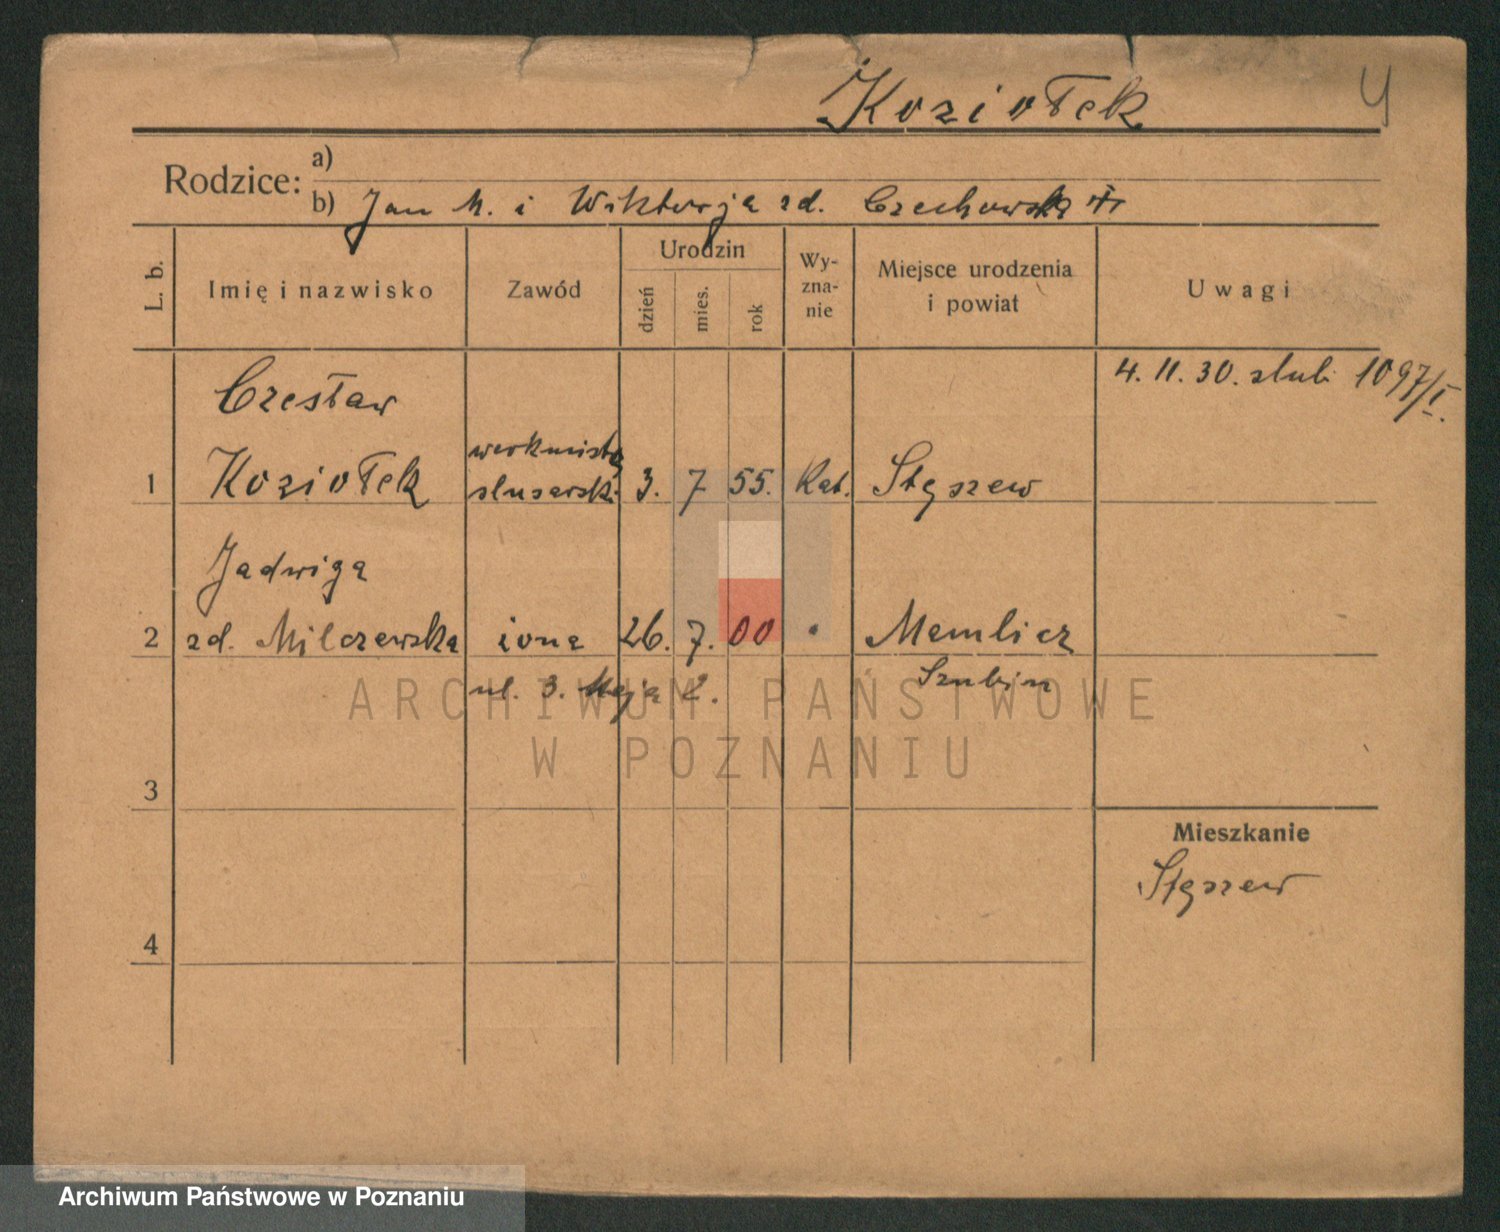 Koziołek
4
Rodzice: a)
b) Jan M. i Wiktorja zd. Czechowska
L. b.
Imię i nazwisko
Zawód
Urodzin
dzień
mies.
rok
Wy-
zna-
nie
Miejsce urodzenia
i powiat
Uwagi
4. 11. 30. słub. 1097/I.
Czesław
1 Koziołek werkmistrz ślusarski 3. 7 55. Kat. Stęszew
Jadwiga
2 zd. Milczewska żona 26. 7. 00 " Memlicz
ul. 3. Maja 2. Szubin
3
Mieszkanie
Stęszew
4
ARCHIWUM PAŃSTWOWE
W POZNANIU
Archiwum Państwowe w Poznaniu